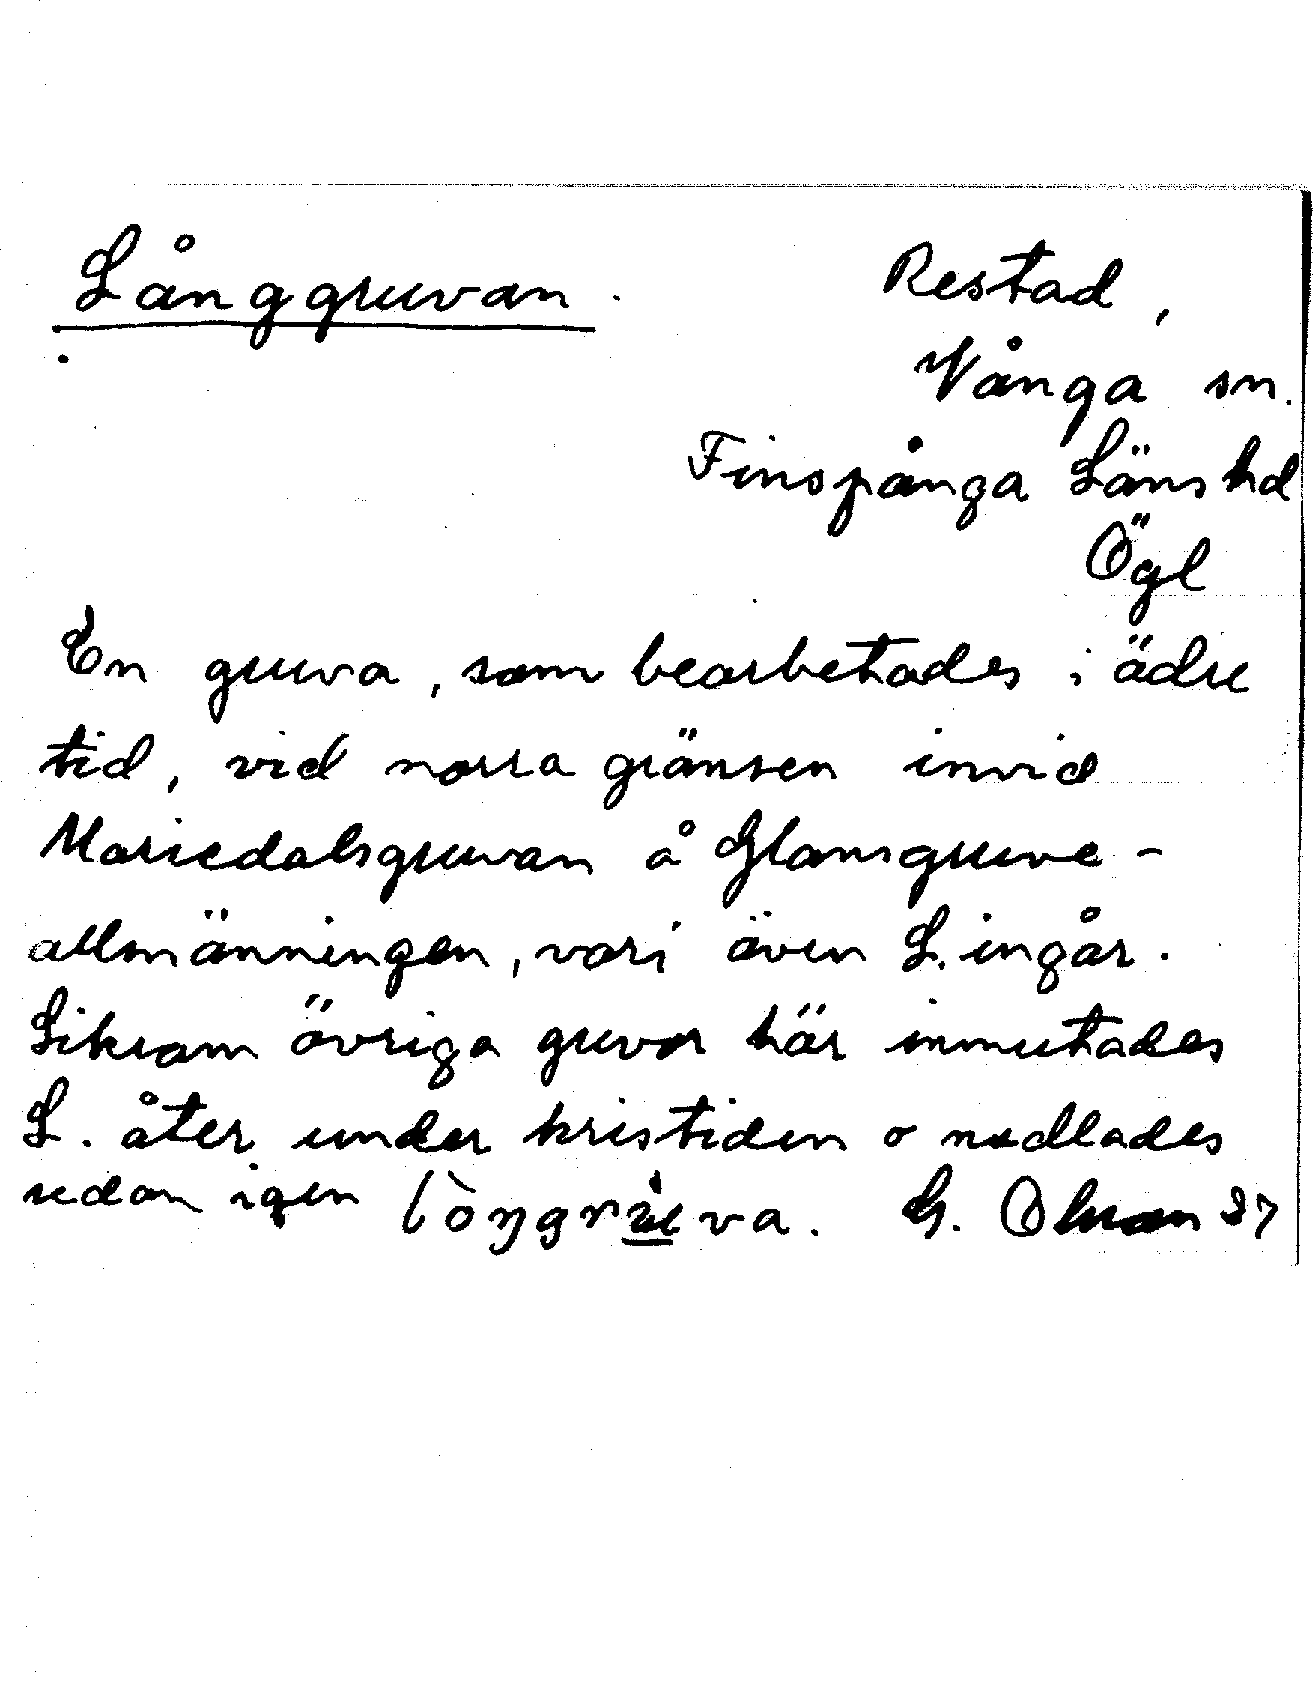 Långgruvan.
Restad,
Vånga sn.
Finspånga Läns hd
Ögl
En gruva, som bearbetades i ädre
tid, vid norra gränsen invid
Mariedalsgruvan å Glansgruve-
allmänningen, vari även L. ingår.
Liksom övriga gruvor här inmutades
L. åter under kristiden o nedlades
sedan igen lòŋgrùva. G. Olsson 37